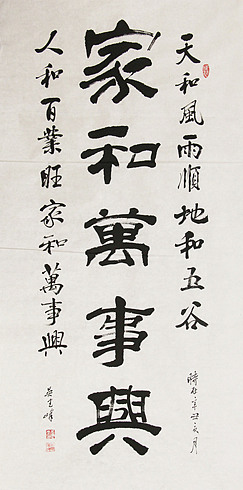 天和風雨順地和五谷
家和萬事興
人和百業旺家和萬事興